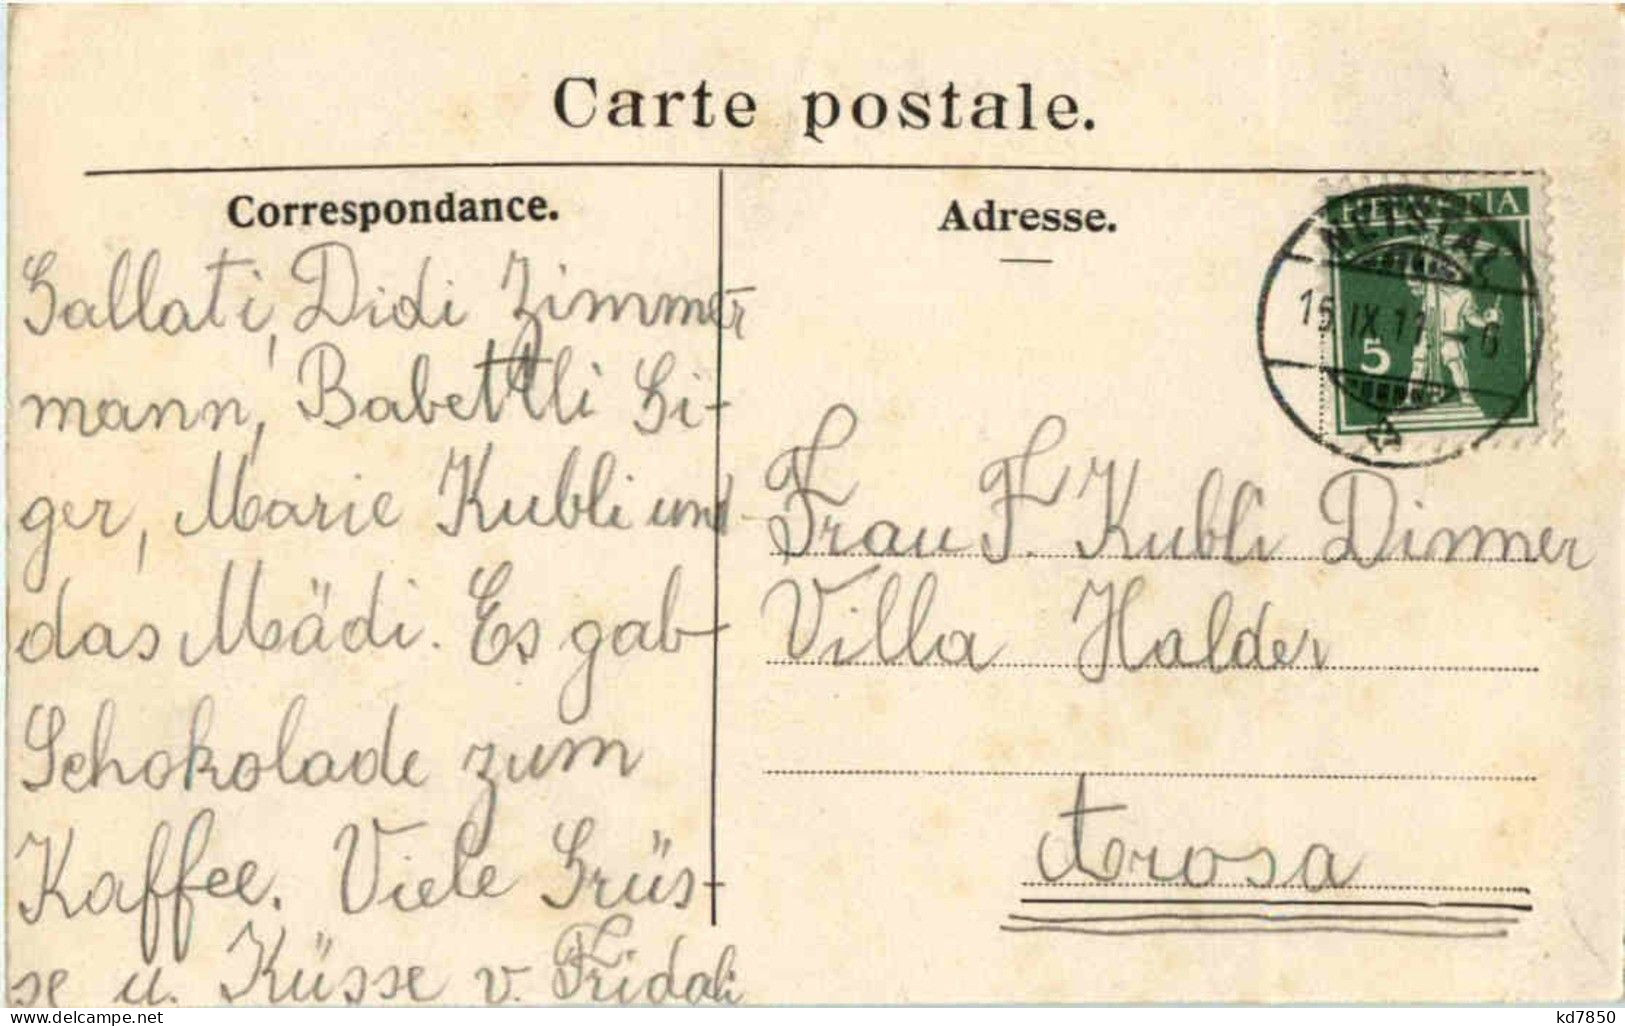 Carte postale.
Correspondance.
Gallati, Didi Zimmer
mann, Babettli Gi-
ger, Marie Kubli und
das Mädi. Es gab
Schokolade zum
Kaffee. Viele Grüs-
se u. Küsse v. Fridali
Adresse.
HELVETIA
NETSTAL
15. IX. 11. - 6
5
Frau F. Kubli Dinner
Villa Halder
Arosa
delcampe.net
kd7850